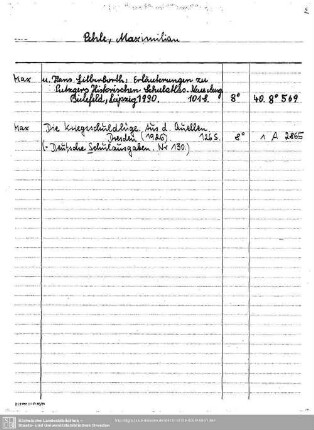 Pehle, Maximilian
Max u. Hans Silberborth: Erläuterungen zu
Putzgers Historischen Schulatlas. Neue Ausg.
Bielefeld, Leipzig 1930. 101 S. 8° 40. 8° 569
Max Die Kriegsschuldlüge. Aus d. Quellen
Dresden (1926) 126 S. 8° 1 A 2865
(= Deutsche Schulausgaben. Nr 130.)